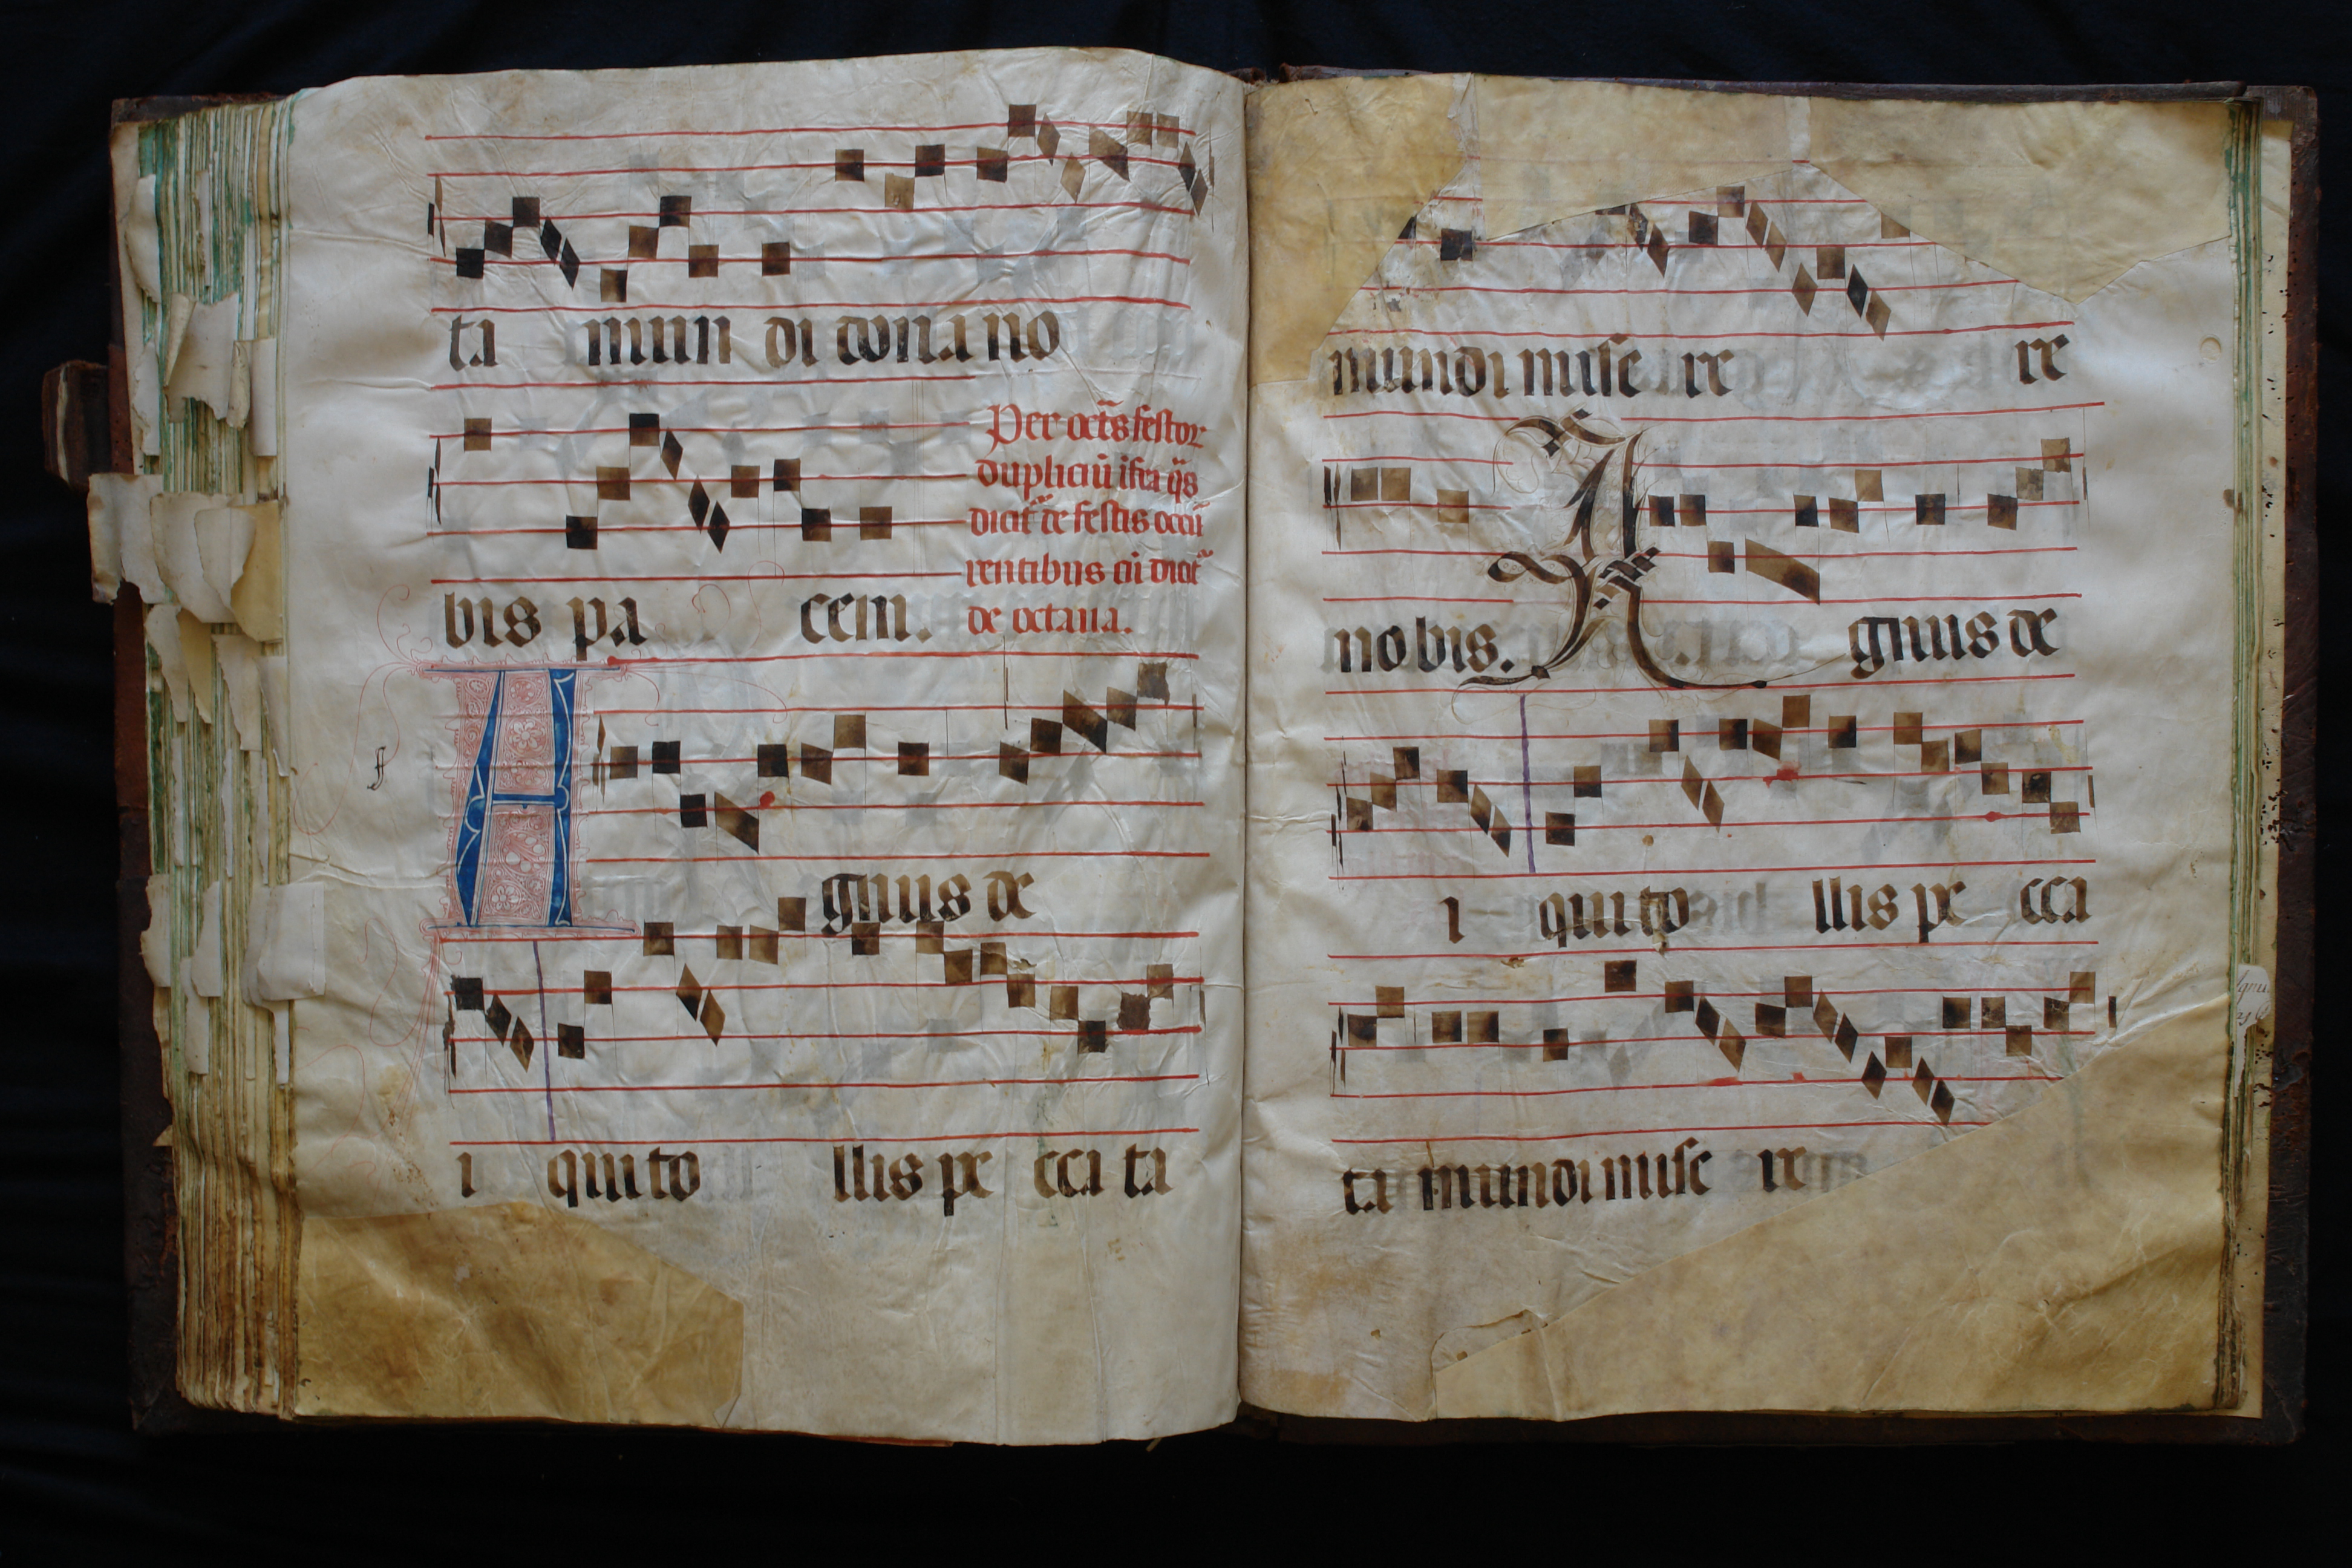 ta mun di dona no
bis pa cem.
Per octãs festor
dupliciũ ifra q̃s
dicit̃ de festis occũ
rentibus cũ dicit̃
de octaua.
A gnus de
i qui to llis pe cca ta
mundi mise re re
no bis. A gnus de
i qui to llis pe cca
ta mundi mise re